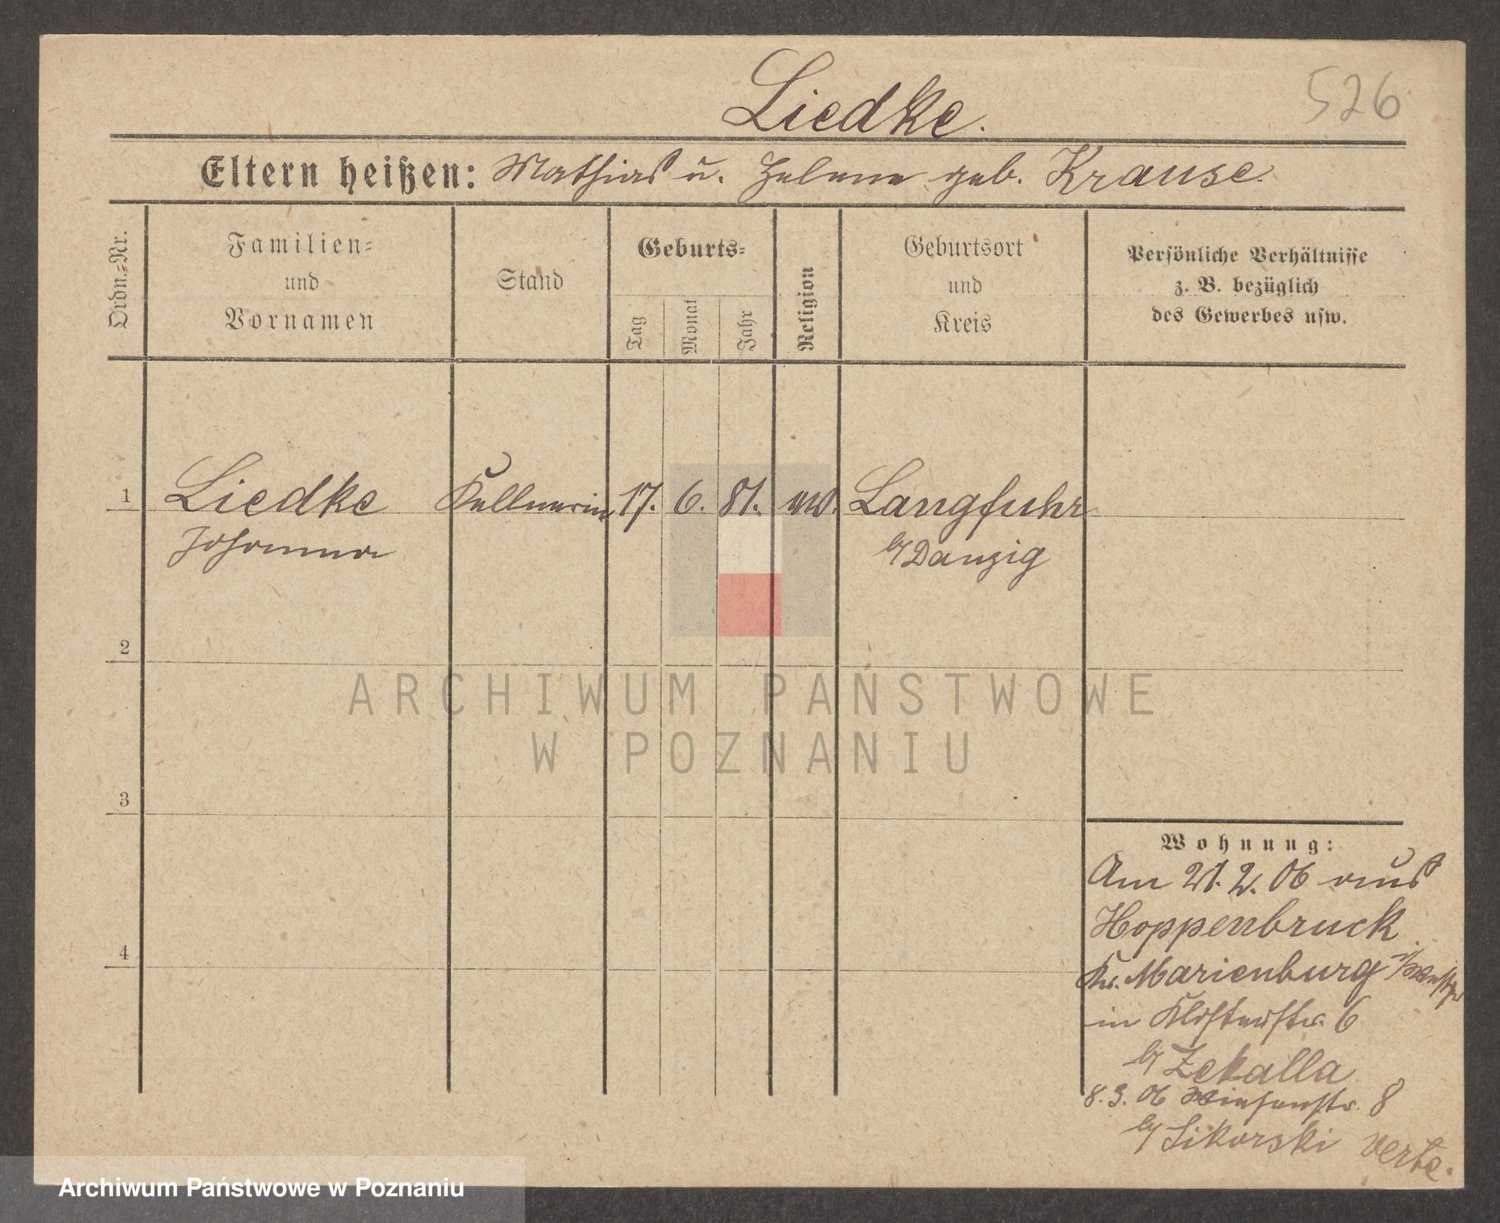 Liedke.
526
Eltern heißen: Mathias u. Helene geb. Krause.
Ordn.-Nr.
Familien-
und
Vornamen
Stand
Geburts-
Tag
Monat
Jahr
Religion
Geburtsort
und
Kreis
Persönliche Verhältnisse
z. B. bezüglich
des Gewerbes usw.
1 Liedke Kellnerin 17. 6. 81. ev. Langfuhr
Johanna b/ Danzig
2
3
4
ARCHIWUM PAŃSTWOWE
W POZNANIU
Wohnung:
Am 21. 2. 06 aus
Hoppenbruck
Kr. Marienburg i/Westpr
in Klosterstr. 6
b/ Zekalla
8. 3. 06 Wiesenstr. 8
b/ Sikorski verte.
Archiwum Państwowe w Poznaniu